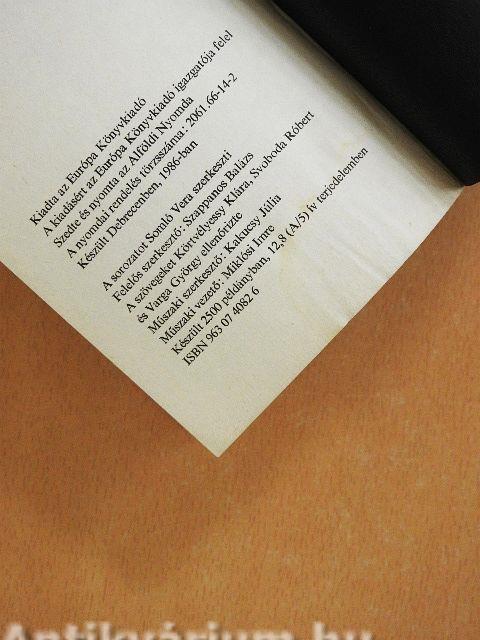 Kiadta az Európa Könyvkiadó
A kiadásért az Európa Könyvkiadó igazgatója felel
Szedte és nyomta az Alföldi Nyomda
A nyomdai rendelés törzsszáma: 2061.66-14-2
Készült Debrecenben, 1986-ban
A sorozatot Somló Vera szerkeszti
Felelős szerkesztő: Szappanos Balázs
A szövegeket Körtvélyessy Klára, Svoboda Róbert
és Varga György ellenőrizte
Műszaki szerkesztő: Kakucsy Júlia
Műszaki vezető: Miklósi Imre
Készült 2500 példányban, 12,8 (A/5) ív terjedelemben
ISBN 963 07 4082 6
Antikvárium.hu